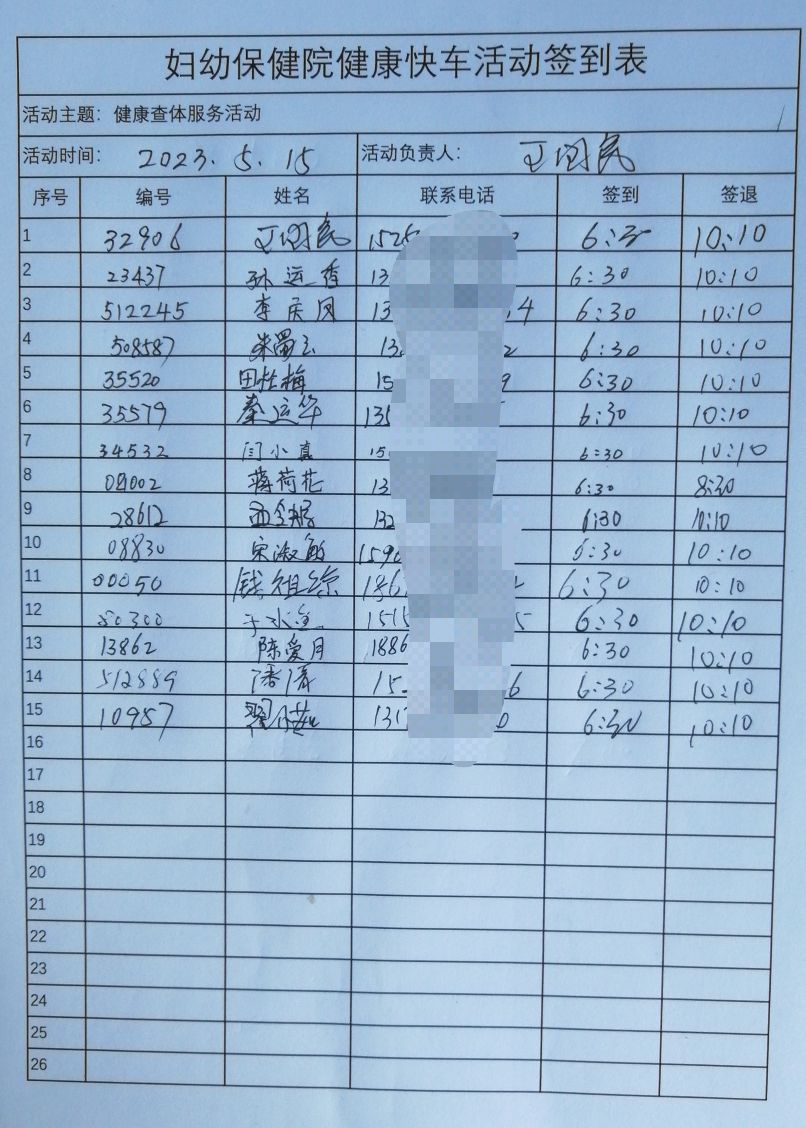 妇幼保健院健康快车活动签到表
活动主题：健康查体服务活动
活动时间： 2023.5.15 活动负责人： 王国民
序号 编号 姓名 联系电话 签到 签退
1 32906 王国民 1525 6:30 10:10
2 23437 孙运香 13 6:30 10:10
3 512245 李庆凤 13 4 6:30 10:10
4 508587 朱蜀玉 13 2 6:30 10:10
5 35520 田桂梅 15 9 6:30 10:10
6 35579 秦运华 135 6:30 10:10
7 34532 闫小真 15 6:30 10:10
8 蒋荷花 13 6:30 8:30
9 28612 132 6:30 10:10
10 08830 宋淑敏 1590 6:30 10:10
11 00050 钱祖综 6:30 10:10
12 80300 于水 1515 5 6:30 10:10
13 13862 陈爱月 1886 6:30 10:10
14 512889 潘 15 6 6:30 10:10
15 10957 131 0 6:30 10:10
16
17
18
19
20
21
22
23
24
25
26